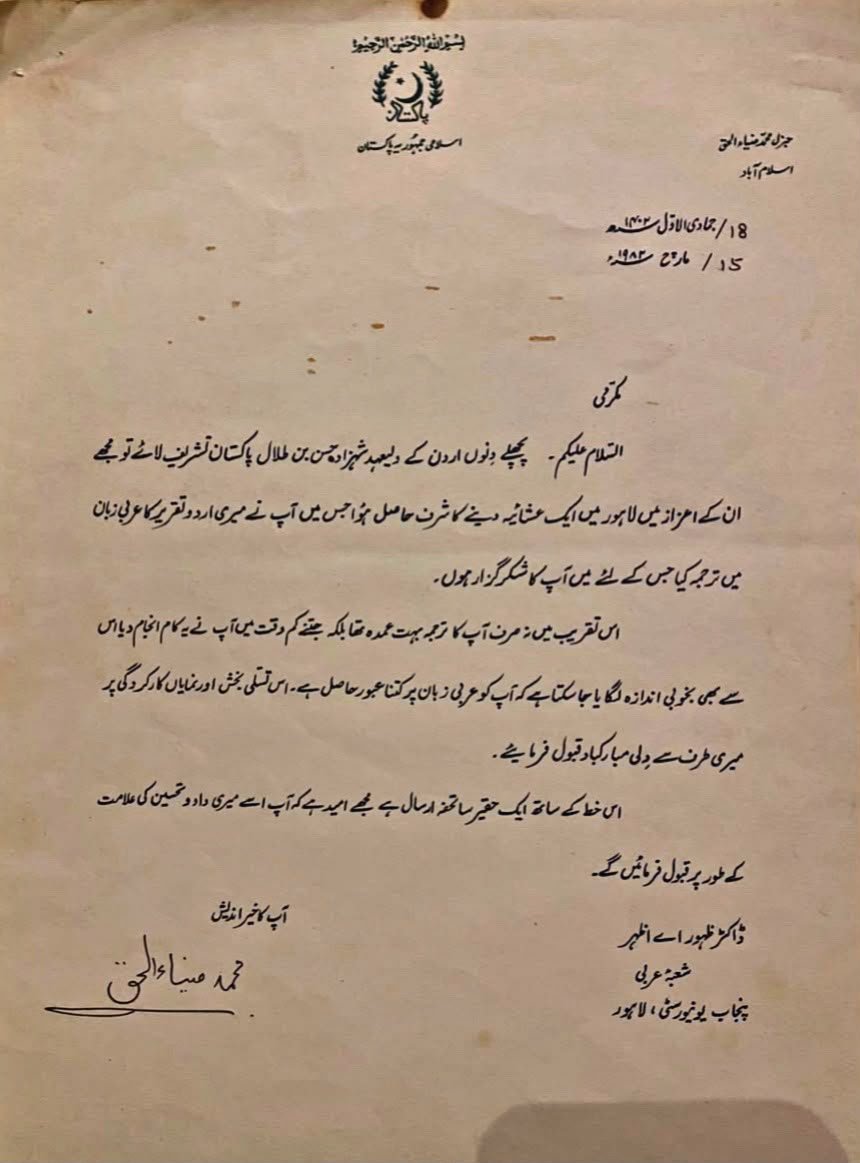 بسم الله الرحمن الرحيم
پاکستان
اسلامی جمہوریہ پاکستان
جنرل محمد ضیاء الحق
اسلام آباد
18/ جمادی الاول ۱۴۰۲ سنہ ھ
15/ مارچ ۱۹۸۲ سنہ ء
مکرمی
السلام علیکم۔ پچھلے دنوں اردن کے ولیعہد شہزادہ حسن بن طلال پاکستان تشریف لائے تو مجھے
ان کے اعزاز میں لاہور میں ایک عشائیہ دینے کا شرف حاصل ہؤا جس میں آپ نے میری اردو تقریر کا عربی زبان
میں ترجمہ کیا جس کے لئے میں آپ کا شکر گزار ہوں۔
اس تقریب میں نہ صرف آپ کا ترجمہ بہت عمدہ تھا بلکہ جتنے کم وقت میں آپ نے یہ کام انجام دیا اس
سے بھی بخوبی اندازہ لگایا جا سکتا ہے کہ آپ کو عربی زبان پر کتنا عبور حاصل ہے۔ اس تسلی بخش اور نمایاں کارکردگی پر
میری طرف سے دِلی مبارکباد قبول فرمایئے۔
اس خط کے ساتھ ایک حقیر سا تحفہ ارسال ہے مجھے امید ہے کہ آپ اسے میری داد و تحسین کی علامت
کے طور پر قبول فرمائیں گے۔
آپ کا خیر اندیش
محمد ضیاء الحق
ڈاکٹر ظہور اے اظہر
شعبۂ عربی
پنجاب یونیورسٹی، لاہور